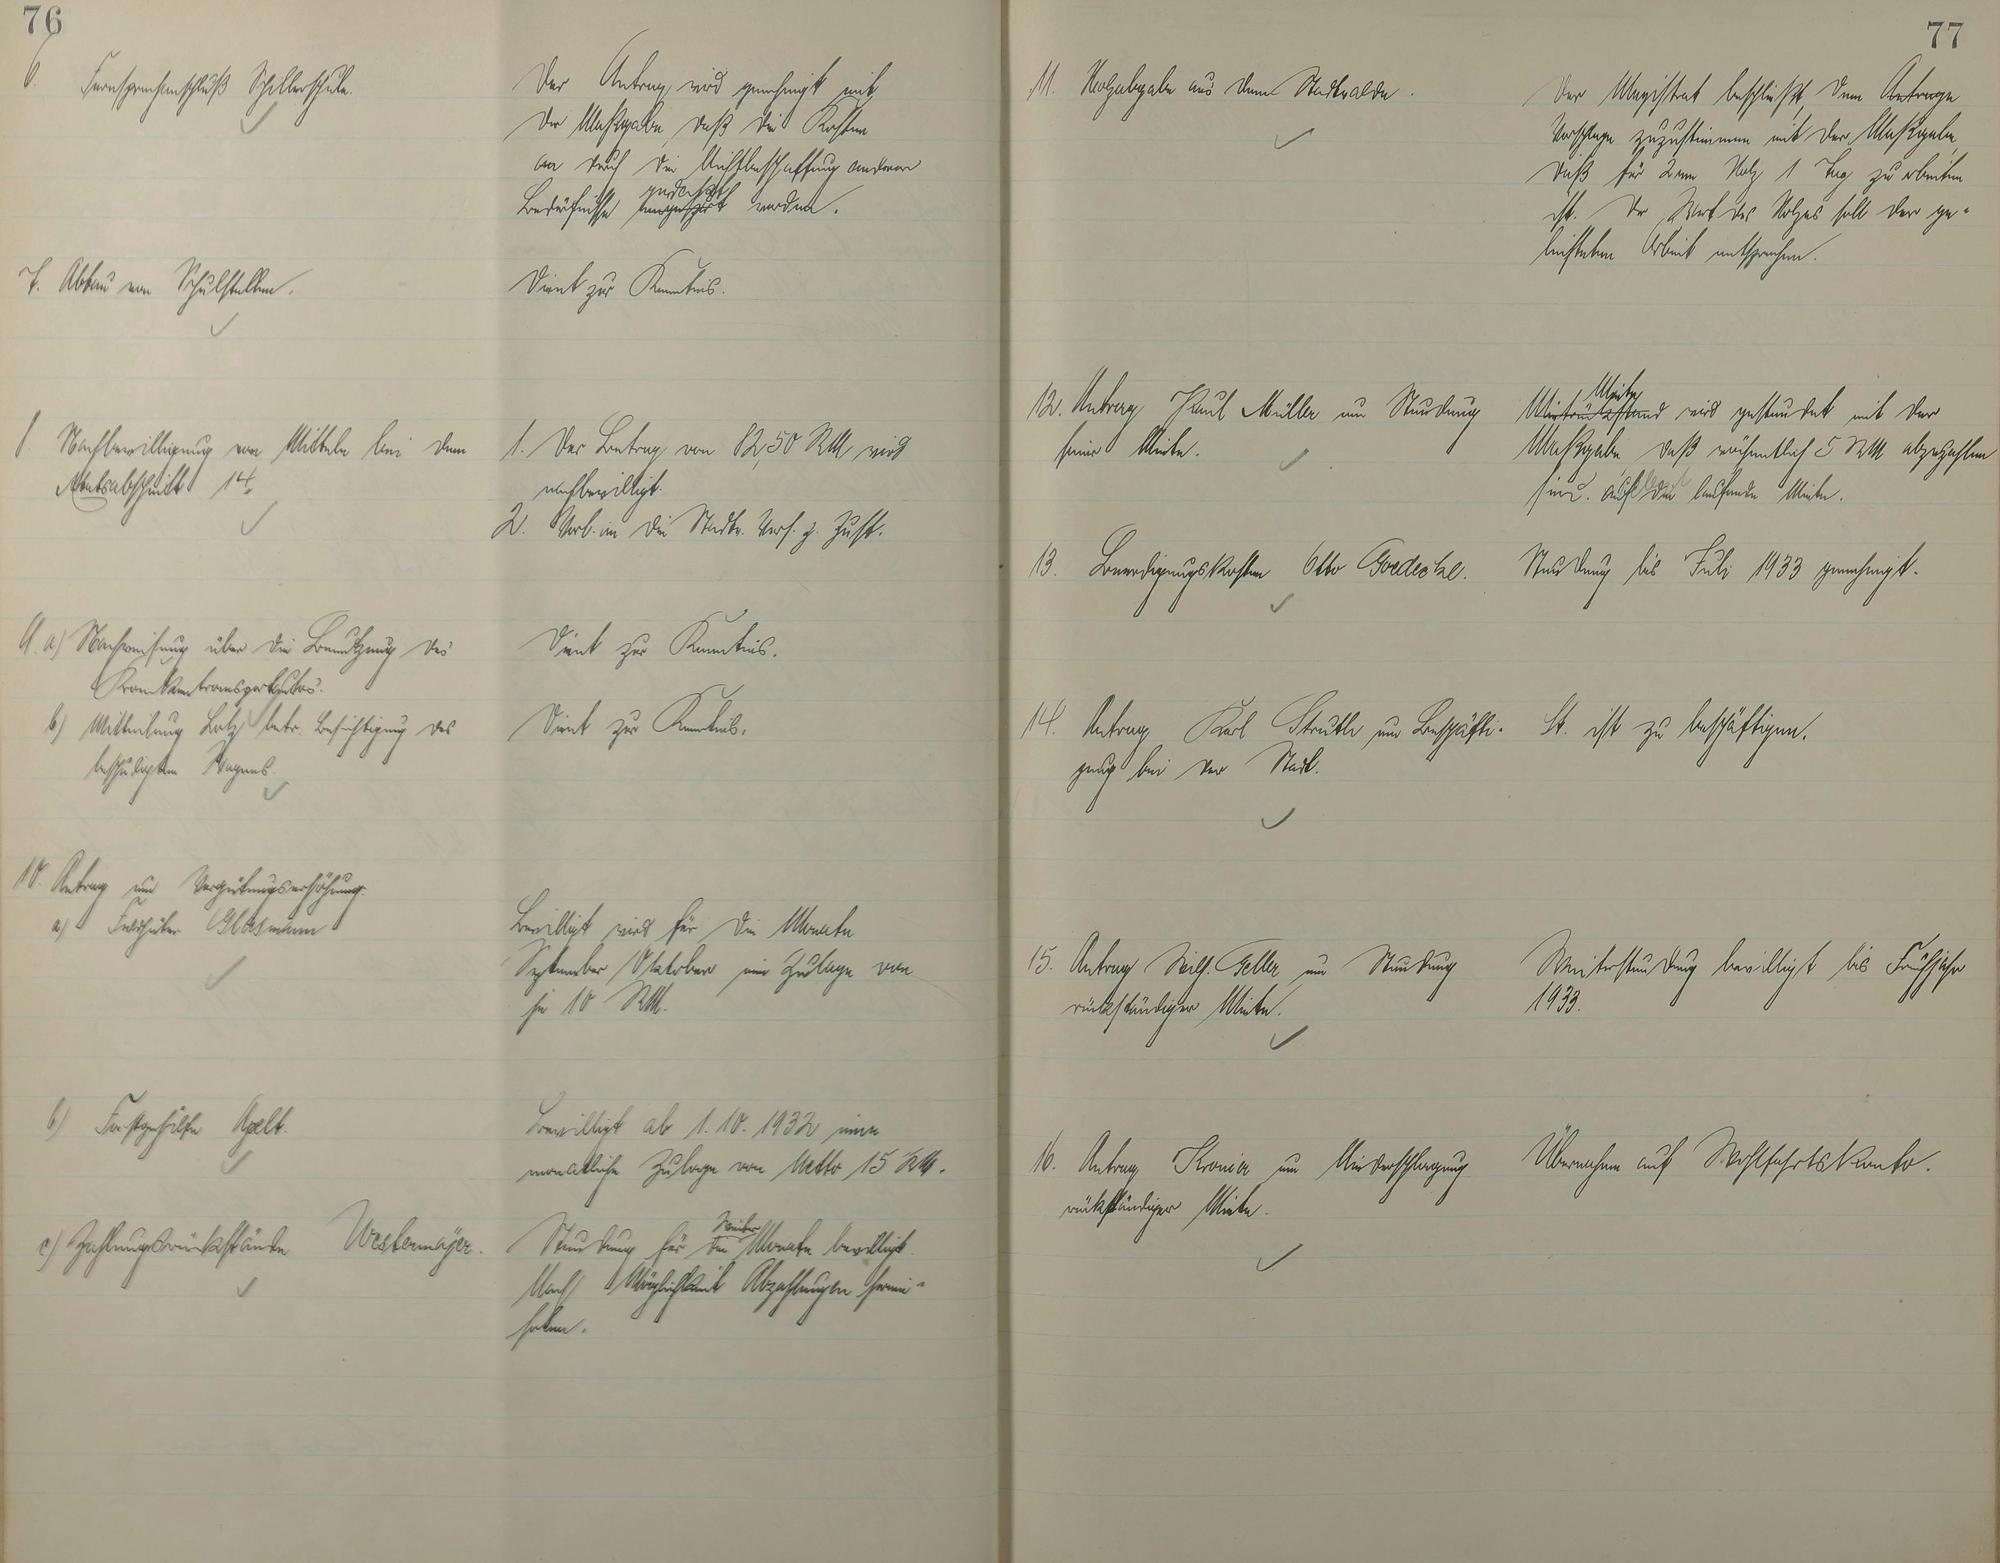 76
6. Fernsprechanschluß Schillerschule.
Der Antrag wird genehmigt mit
der Maßgabe, daß die Kosten
durch die Nichtbeschaffung anderer
Bedürfnisse gedeckt werden.
7. Abbau von Schulstellen.
Dient zur Kenntnis.
8. Nachbewilligung von Mitteln bei dem
Etatsabschnitt 14.
1. Der Betrag von 82,50 RM wird
nachbewilligt.
2. Vorl. an die Stadtv. Vers. z. Zust.
9. a) Nachweisung über die Benutzung des
Krankentransportautos.
Dient zur Kenntnis.
b) Mitteilung Lotz betr. Besichtigung des
beschädigten Wagens.
Dient zur Kenntnis.
10. Antrag um Vergütungserhöhung.
a) Feldhüter Glasmann
Bewilligt wird für die Monate
September/Oktober eine Zulage von
je 10 RM.
b) Forstgehilfe Apelt.
Bewilligt ab 1.10.1932 eine
monatliche Zulage von Netto 15 RM.
c) Zahlungsrückstände Westermayer.
Stundung für die Winter Monate bewilligt.
Nach Möglichkeit Abzahlungen herein-
holen.
77
11. Holzabgabe aus dem Stadtwalde.
Der Magistrat beschließt, dem Antrage
Vorschlage zuzustimmen mit der Maßgabe,
daß für 2 rm Holz 1 Tag zu arbeiten
ist. Der Wert des Holzes soll der ge-
leisteten Arbeit entsprechen.
12. Antrag Paul Müller um Stundung
seiner Miete.
Miete
Mietrückstand wird gestundet mit der
Maßgabe daß wöchentlich 5 RM abzuzahlen
sind. auf die laufende Miete.
13. Beerdigungskosten Otto Goedecke.
Stundung bis Juli 1933 genehmigt.
14. Antrag Karl Struth um Beschäfti-
gung bei der Stadt.
St. ist zu beschäftigen.
15. Antrag Wilh. Geller um Stundung
rückständiger Miete.
Weiterstundung bewilligt bis Frühjahr
1933.
16. Antrag Kronier um Niederschlagung
rückständiger Miete.
Übernahme auf Wohlfahrtskonto.